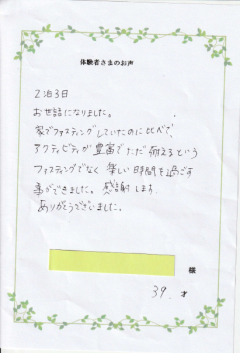 体験者さまのお声
2泊3日
お世話になりました。
家でファスティングしていたのに比べて、
アクティビティが豊富でただ耐えるという
ファスティングでなく 楽しい時間を過ごす
事ができました。感謝します。
ありがとうございました。
様
39. 才